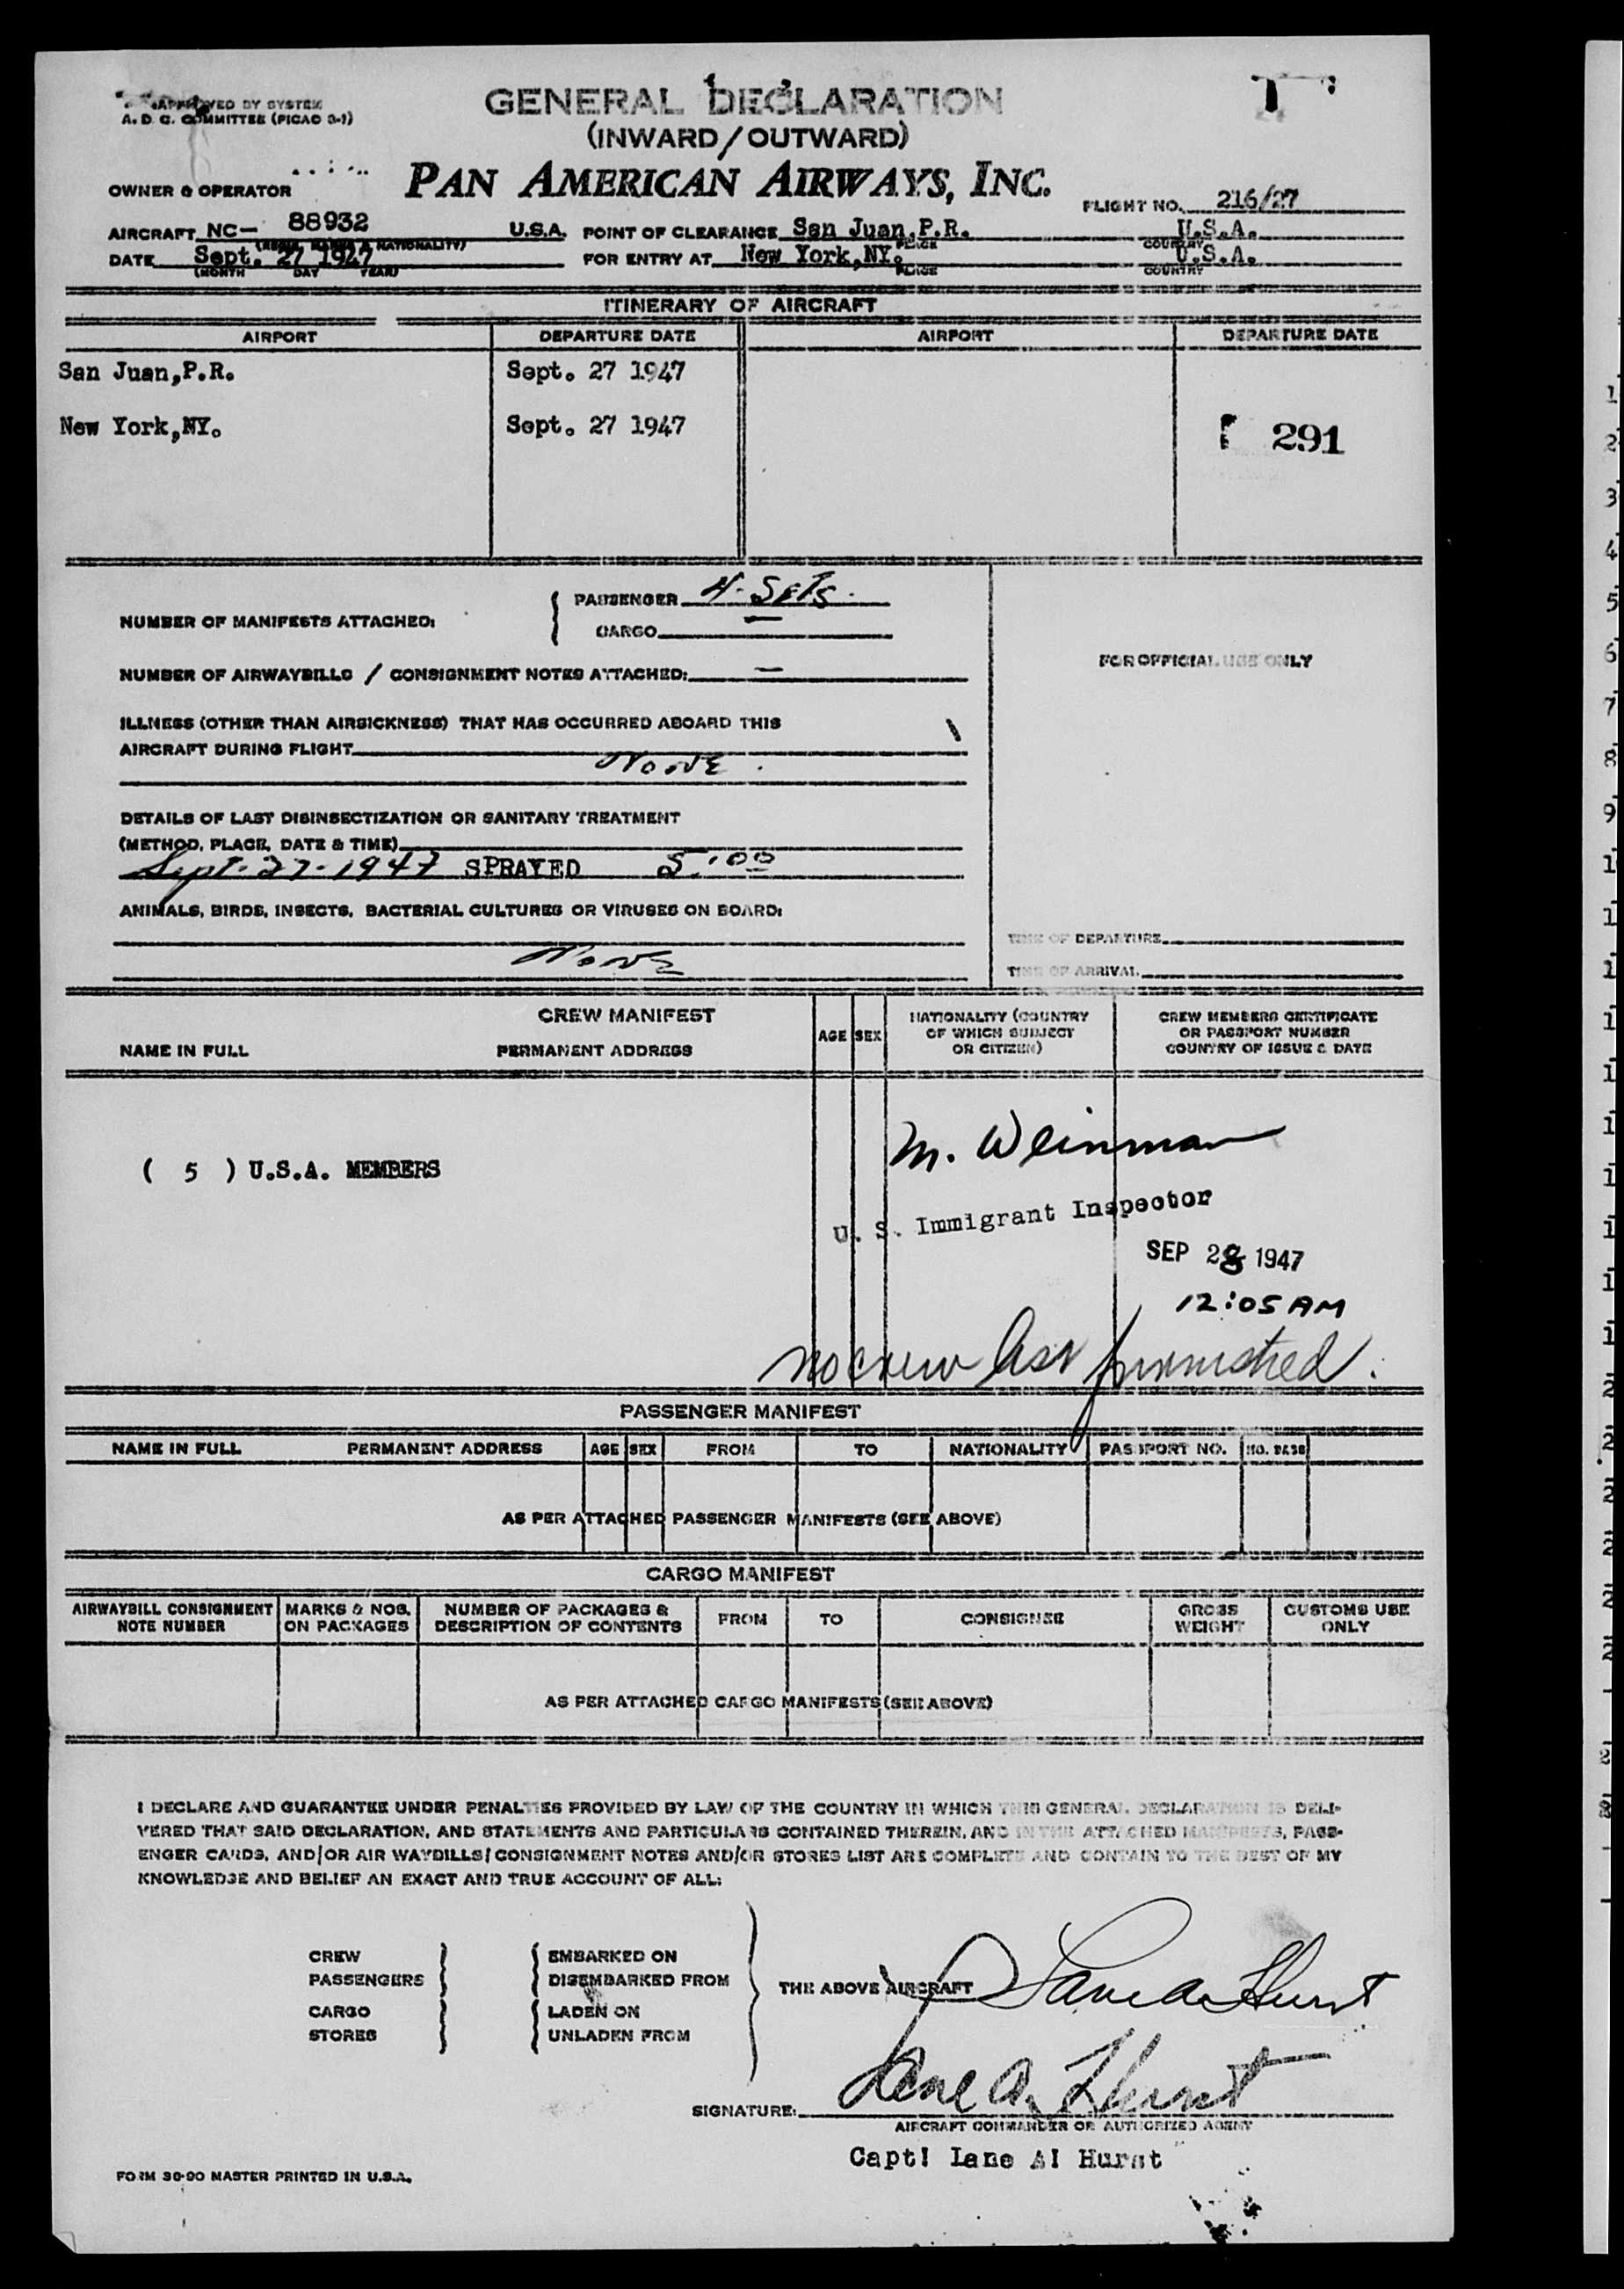 APPROVED BY SYSTEM
A. D. C. COMMITTEE (PICAO 3-1)
GENERAL DECLARATION
(INWARD/OUTWARD)
OWNER & OPERATOR PAN AMERICAN AIRWAYS, INC.
FLIGHT NO. 216/27
AIRCRAFT NC- 88932 U.S.A. POINT OF CLEARANCE San Juan,P.R. U.S.A.
PLACE COUNTRY
DATE Sept. 27 1947 FOR ENTRY AT New York,NY. U.S.A.
(MONTH DAY YEAR) PLACE COUNTRY
ITINERARY OF AIRCRAFT
AIRPORT DEPARTURE DATE AIRPORT DEPARTURE DATE
San Juan,P.R. Sept. 27 1947
New York,NY. Sept. 27 1947
291
NUMBER OF MANIFESTS ATTACHED: PASSENGER 4-Sets.
CARGO —
NUMBER OF AIRWAYBILLS / CONSIGNMENT NOTES ATTACHED: —
FOR OFFICIAL USE ONLY
ILLNESS (OTHER THAN AIRSICKNESS) THAT HAS OCCURRED ABOARD THIS
AIRCRAFT DURING FLIGHT
None.
DETAILS OF LAST DISINSECTIZATION OR SANITARY TREATMENT
(METHOD, PLACE, DATE & TIME)
Sept-27-1947 SPRAYED 5:00
ANIMALS, BIRDS, INSECTS, BACTERIAL CULTURES OR VIRUSES ON BOARD:
None
TIME OF DEPARTURE
TIME OF ARRIVAL
CREW MANIFEST
NAME IN FULL PERMANENT ADDRESS AGE SEX NATIONALITY (COUNTRY OF WHICH SUBJECT OR CITIZEN) CREW MEMBERS CERTIFICATE OR PASSPORT NUMBER COUNTRY OF ISSUE & DATE
M. Weinman
( 5 ) U.S.A. MEMBERS
U. S. Immigrant Inspector
SEP 28 1947
12:05 AM
no crew list furnished.
PASSENGER MANIFEST
NAME IN FULL PERMANENT ADDRESS AGE SEX FROM TO NATIONALITY PASSPORT NO. NO. BAGS
AS PER ATTACHED PASSENGER MANIFESTS (SEE ABOVE)
CARGO MANIFEST
AIRWAYBILL CONSIGNMENT NOTE NUMBER MARKS & NOS. ON PACKAGES NUMBER OF PACKAGES & DESCRIPTION OF CONTENTS FROM TO CONSIGNEE GROSS WEIGHT CUSTOMS USE ONLY
AS PER ATTACHED CARGO MANIFESTS (SEE ABOVE)
I DECLARE AND GUARANTEE UNDER PENALTIES PROVIDED BY LAW OF THE COUNTRY IN WHICH THIS GENERAL DECLARATION IS DELI-
VERED THAT SAID DECLARATION, AND STATEMENTS AND PARTICULARS CONTAINED THEREIN, AND IN THE ATTACHED MANIFESTS, PASS-
ENGER CARDS, AND/OR AIR WAYBILLS/CONSIGNMENT NOTES AND/OR STORES LIST ARE COMPLETE AND CONTAIN TO THE BEST OF MY
KNOWLEDGE AND BELIEF AN EXACT AND TRUE ACCOUNT OF ALL:
CREW EMBARKED ON
PASSENGERS DISEMBARKED FROM
THE ABOVE AIRCRAFT Lane A Hurst
CARGO LADEN ON
STORES UNLADEN FROM
SIGNATURE: Lane A. Hurst
AIRCRAFT COMMANDER OR AUTHORIZED AGENT
Capt! Lane A! Hurst
FORM 30-90 MASTER PRINTED IN U.S.A.